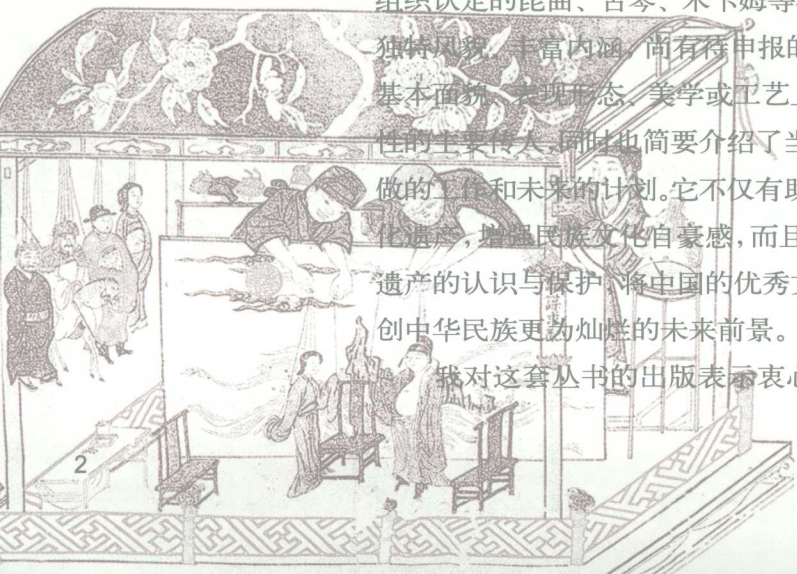 组织认定的昆曲、古琴、木卡姆等
独特风貌、丰富内涵,尚有待申报的
基本面貌、表现形态、美学或工艺上
性的主要传人,同时也简要介绍了当
做的工作和未来的计划。它不仅有助
化遗产,增强民族文化自豪感,而且
遗产的认识与保护,将中国的优秀文
创中华民族更为灿烂的未来前景。
我对这套丛书的出版表示衷心
2